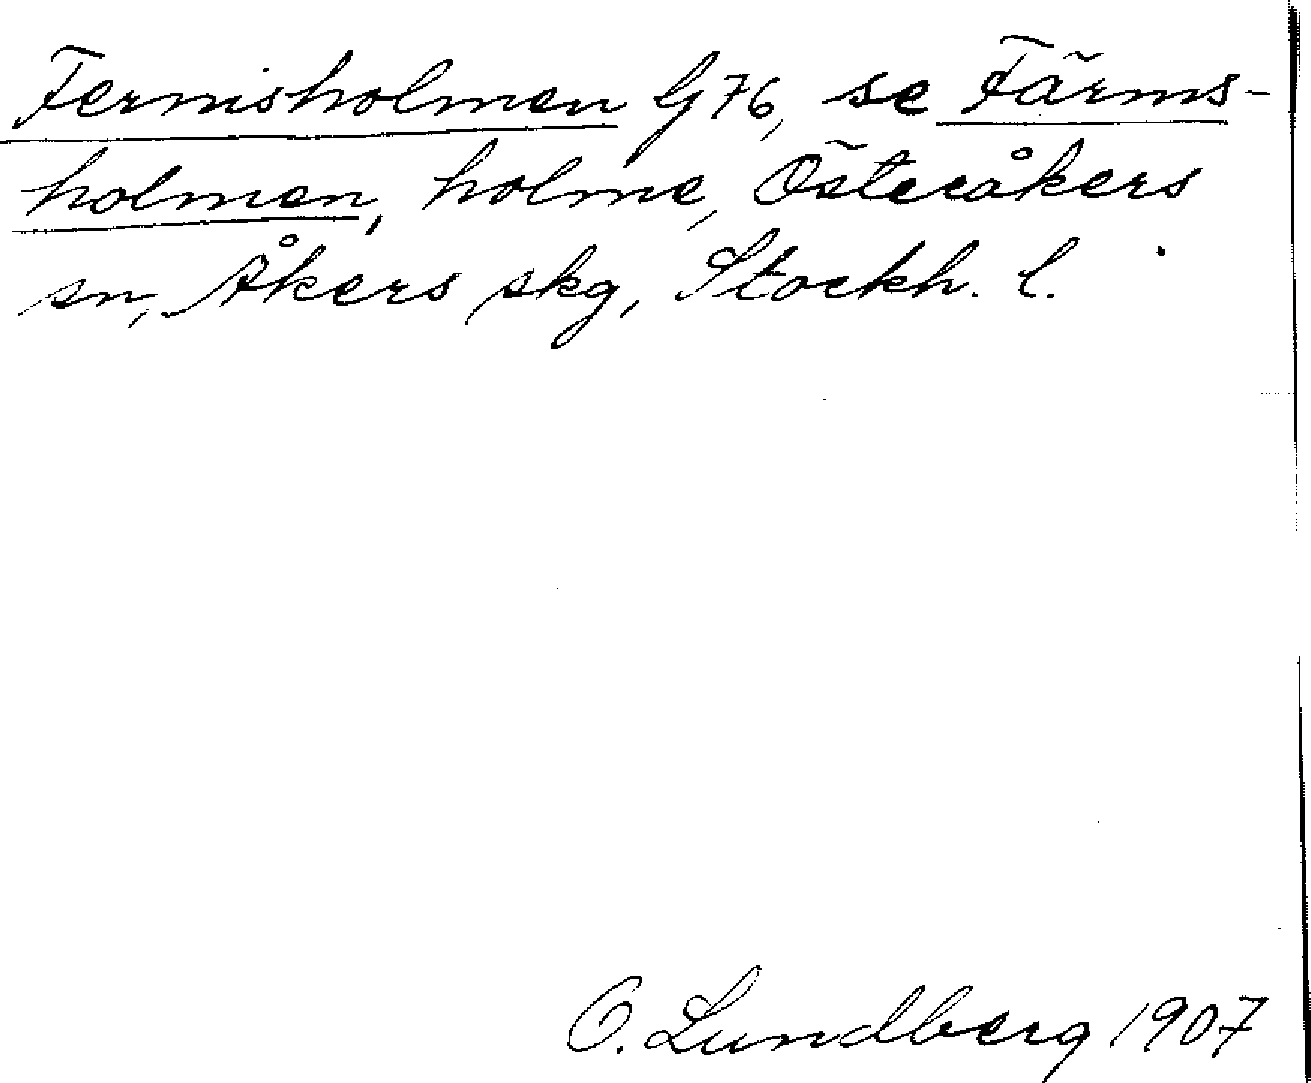 Fermsholmen G76, se Färms-
holmen, holme, Österåkers
sn, Åkers skg, Stockh. l.
O. Lundberg 1907